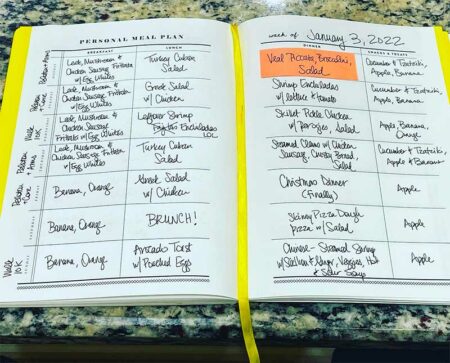 PERSONAL MEAL PLAN
BREAKFAST
LUNCH
Leek, Mushroom &
Chicken Sausage Frittata
w/ Egg Whites
Turkey Cuban
Salad
Leek, Mushroom &
Chicken Sausage Frittata
w/ Egg Whites
Greek Salad
w/ Chicken
Leek, Mushroom &
Chicken Sausage
Frittata w/ Egg Whites
Leftover Shrimp
Enchiladas
LOL
Leek, Mushroom &
Chicken Sausage Frittata
w/ Egg Whites
Turkey Cuban
Salad
Banana, Orange
Salad
w/ Chicken
Banana, Orange
BRUNCH!
Walk
10K
Banana, Orange
Avocado Toast
w/ Poached Eggs
week of January 3, 2022
DINNER
SNACKS & TREATS
Veal Piccata, Broccolini,
Salad
Cucumber & Tzatziki,
Apple, Banana
Shrimp Enchiladas
w/ lettuce & tomato
Cucumber & Tzatziki,
Apple, Banana
Skillet Pickle Chicken
w/ Salad
Apple, Banana,
Orange
Steamed Clams w/ Chicken
Sausage, Crusty Bread,
Salad
Cucumber & Tzatziki,
Apple & Banana
Christmas Dinner
(Finally)
Apple
Skinny Pizza Dough
pizza w/ Salad
Apple
Chinese - Steamed Shrimp
w/ Scallion & Ginger, Veggies, Hot
& Sour Soup
Apple